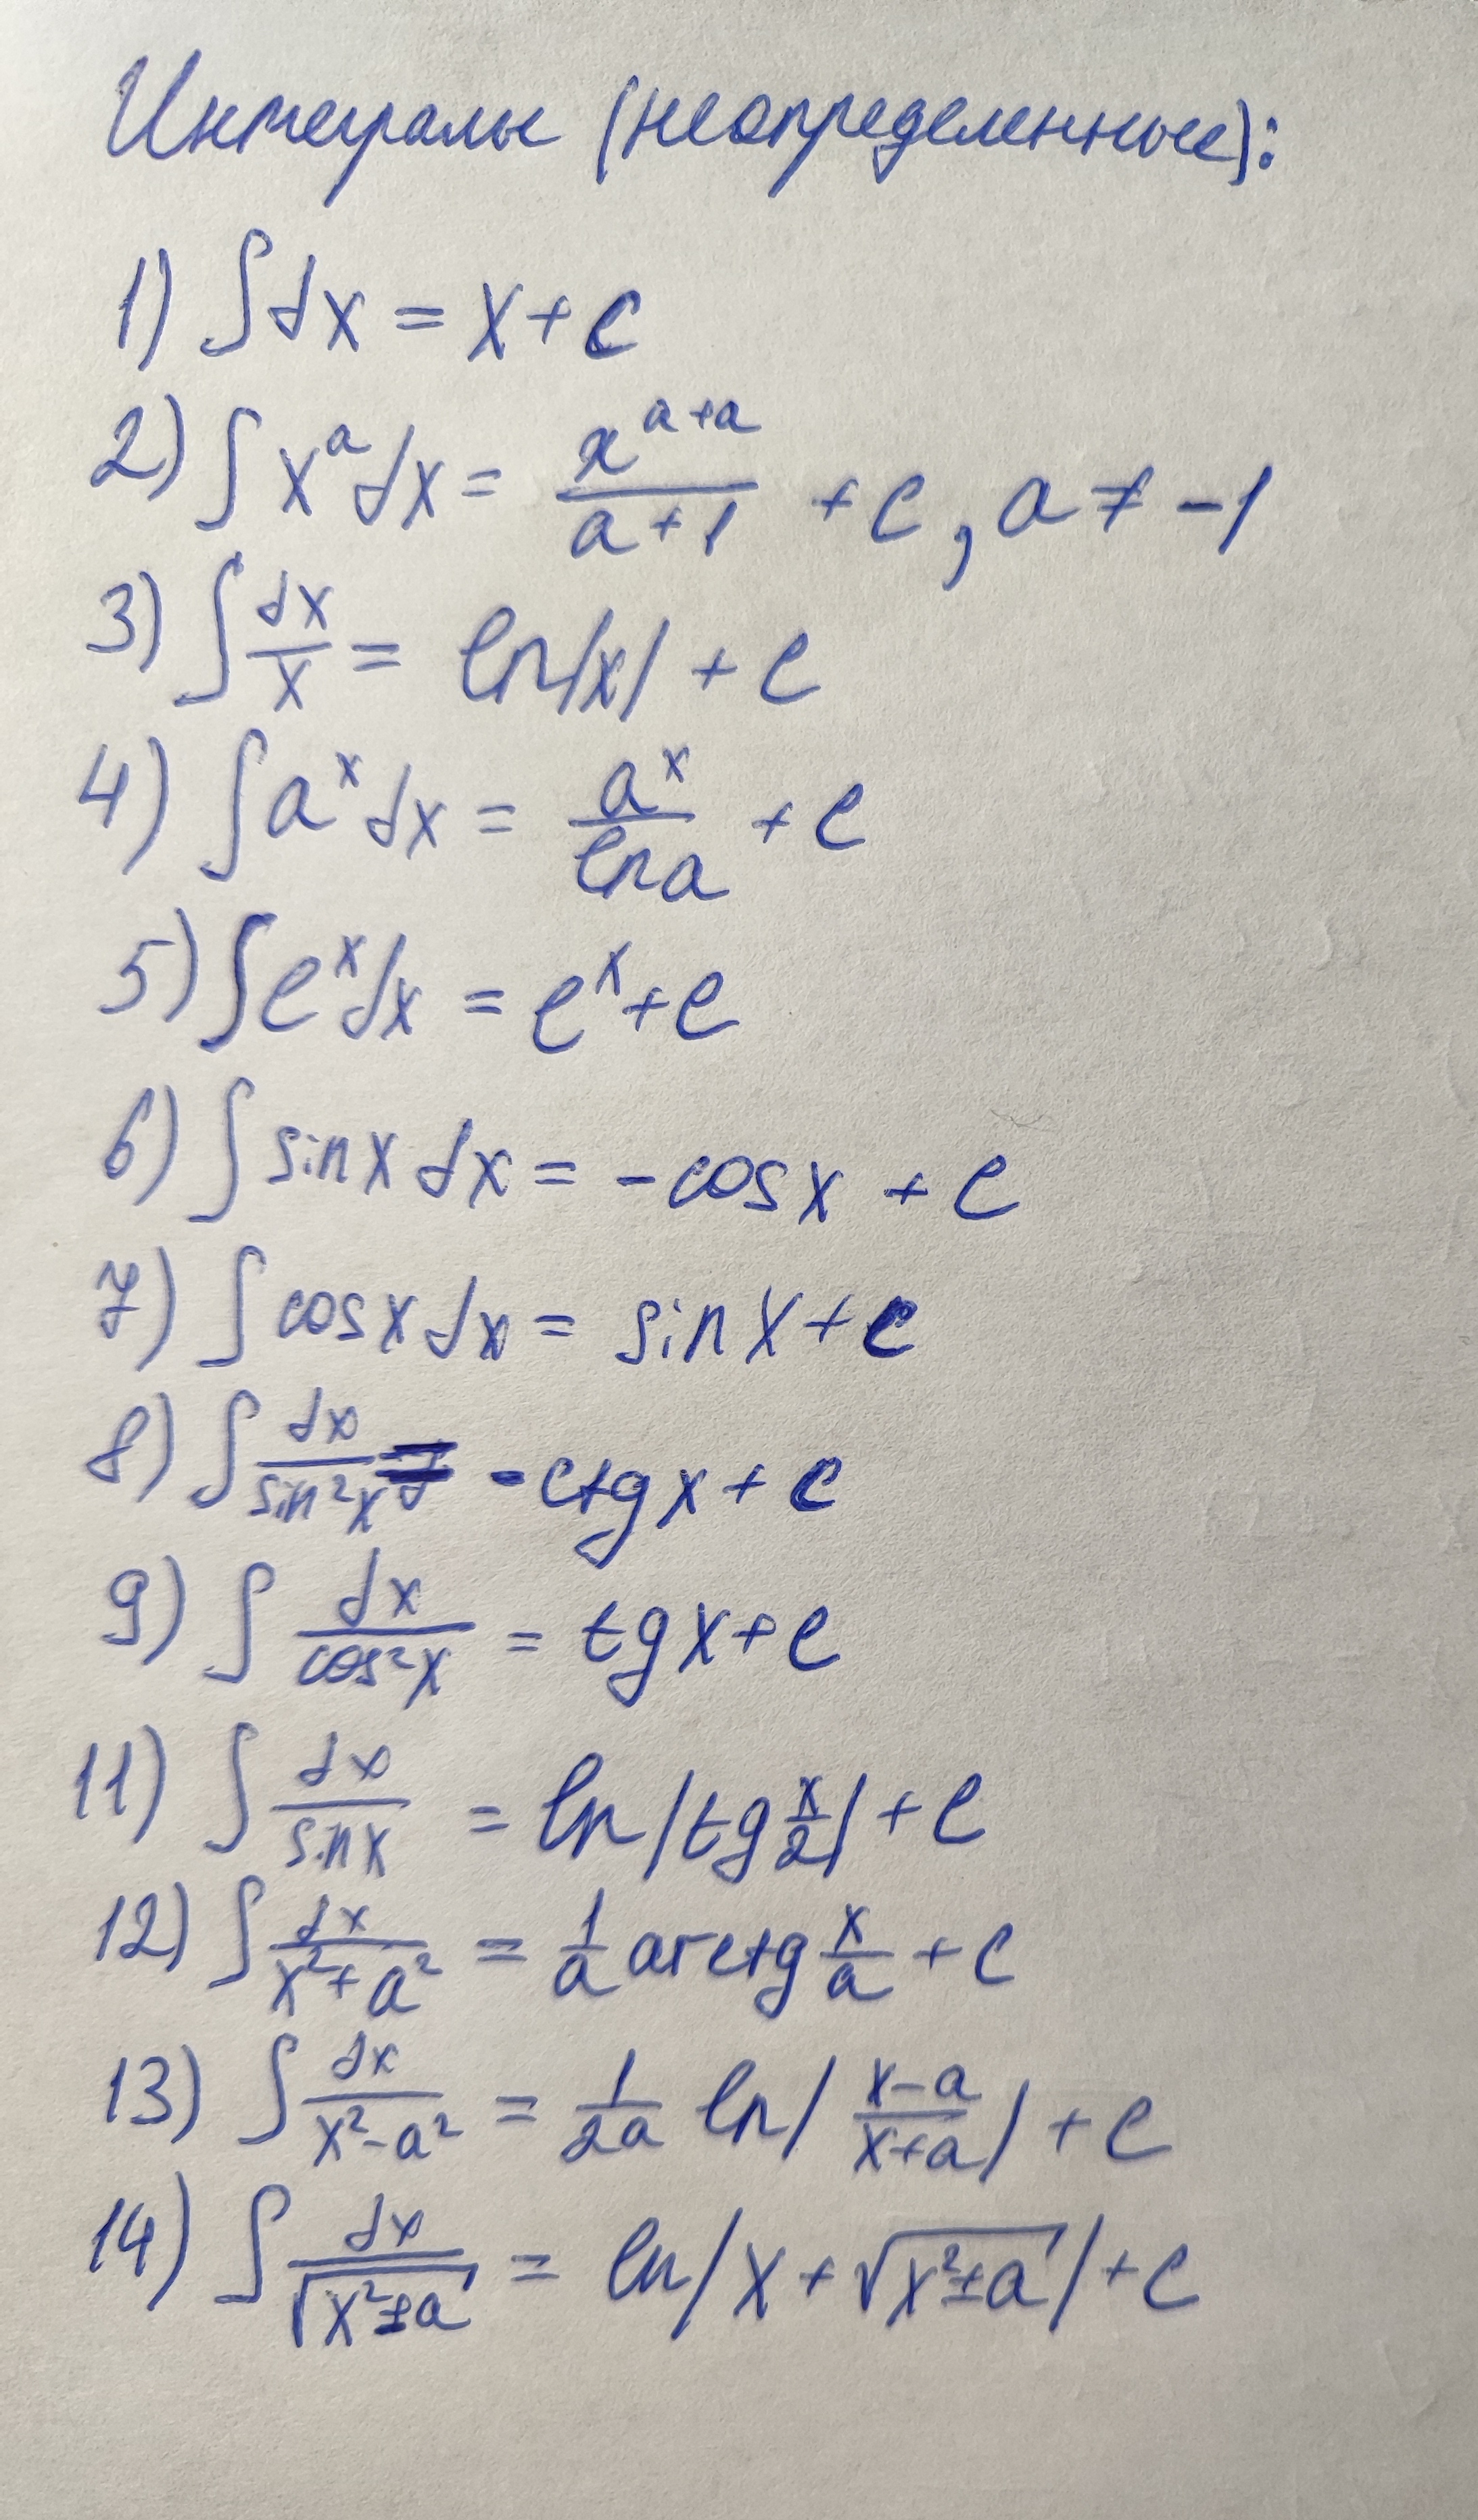 Интегралы (неопределенные):
1) ∫dx = x + c
2) ∫x^a dx = x^(a+a)/(a+1) + c, a ≠ -1
3) ∫dx/x = ln|x| + c
4) ∫a^x dx = a^x/ln a + c
5) ∫e^x dx = e^x + c
6) ∫sin x dx = -cos x + c
7) ∫cos x dx = sin x + c
8) ∫dx/sin²x = -ctg x + c
9) ∫dx/cos²x = tg x + c
11) ∫dx/sin x = ln|tg x/2| + c
12) ∫dx/(x²+a²) = 1/a arctg x/a + c
13) ∫dx/(x²-a²) = 1/2a ln|(x-a)/(x+a)| + c
14) ∫dx/√(x²±a) = ln|x + √(x²±a)| + c